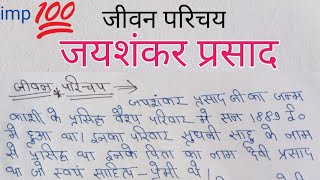 imp 💯
जीवन परिचय
जयशंकर प्रसाद
जीवन परिचय —
जयशंकर प्रसाद जी का जन्म
काशी के प्रसिद्ध वैश्य परिवार में सन 1889 ई०
में हुआ था। इनका परिवार सुघनी साहू के नाम
से प्रसिद्ध था इनके पिता का नाम देवी प्रसाद
था जो स्वयं साहित्य-प्रेमी थे।